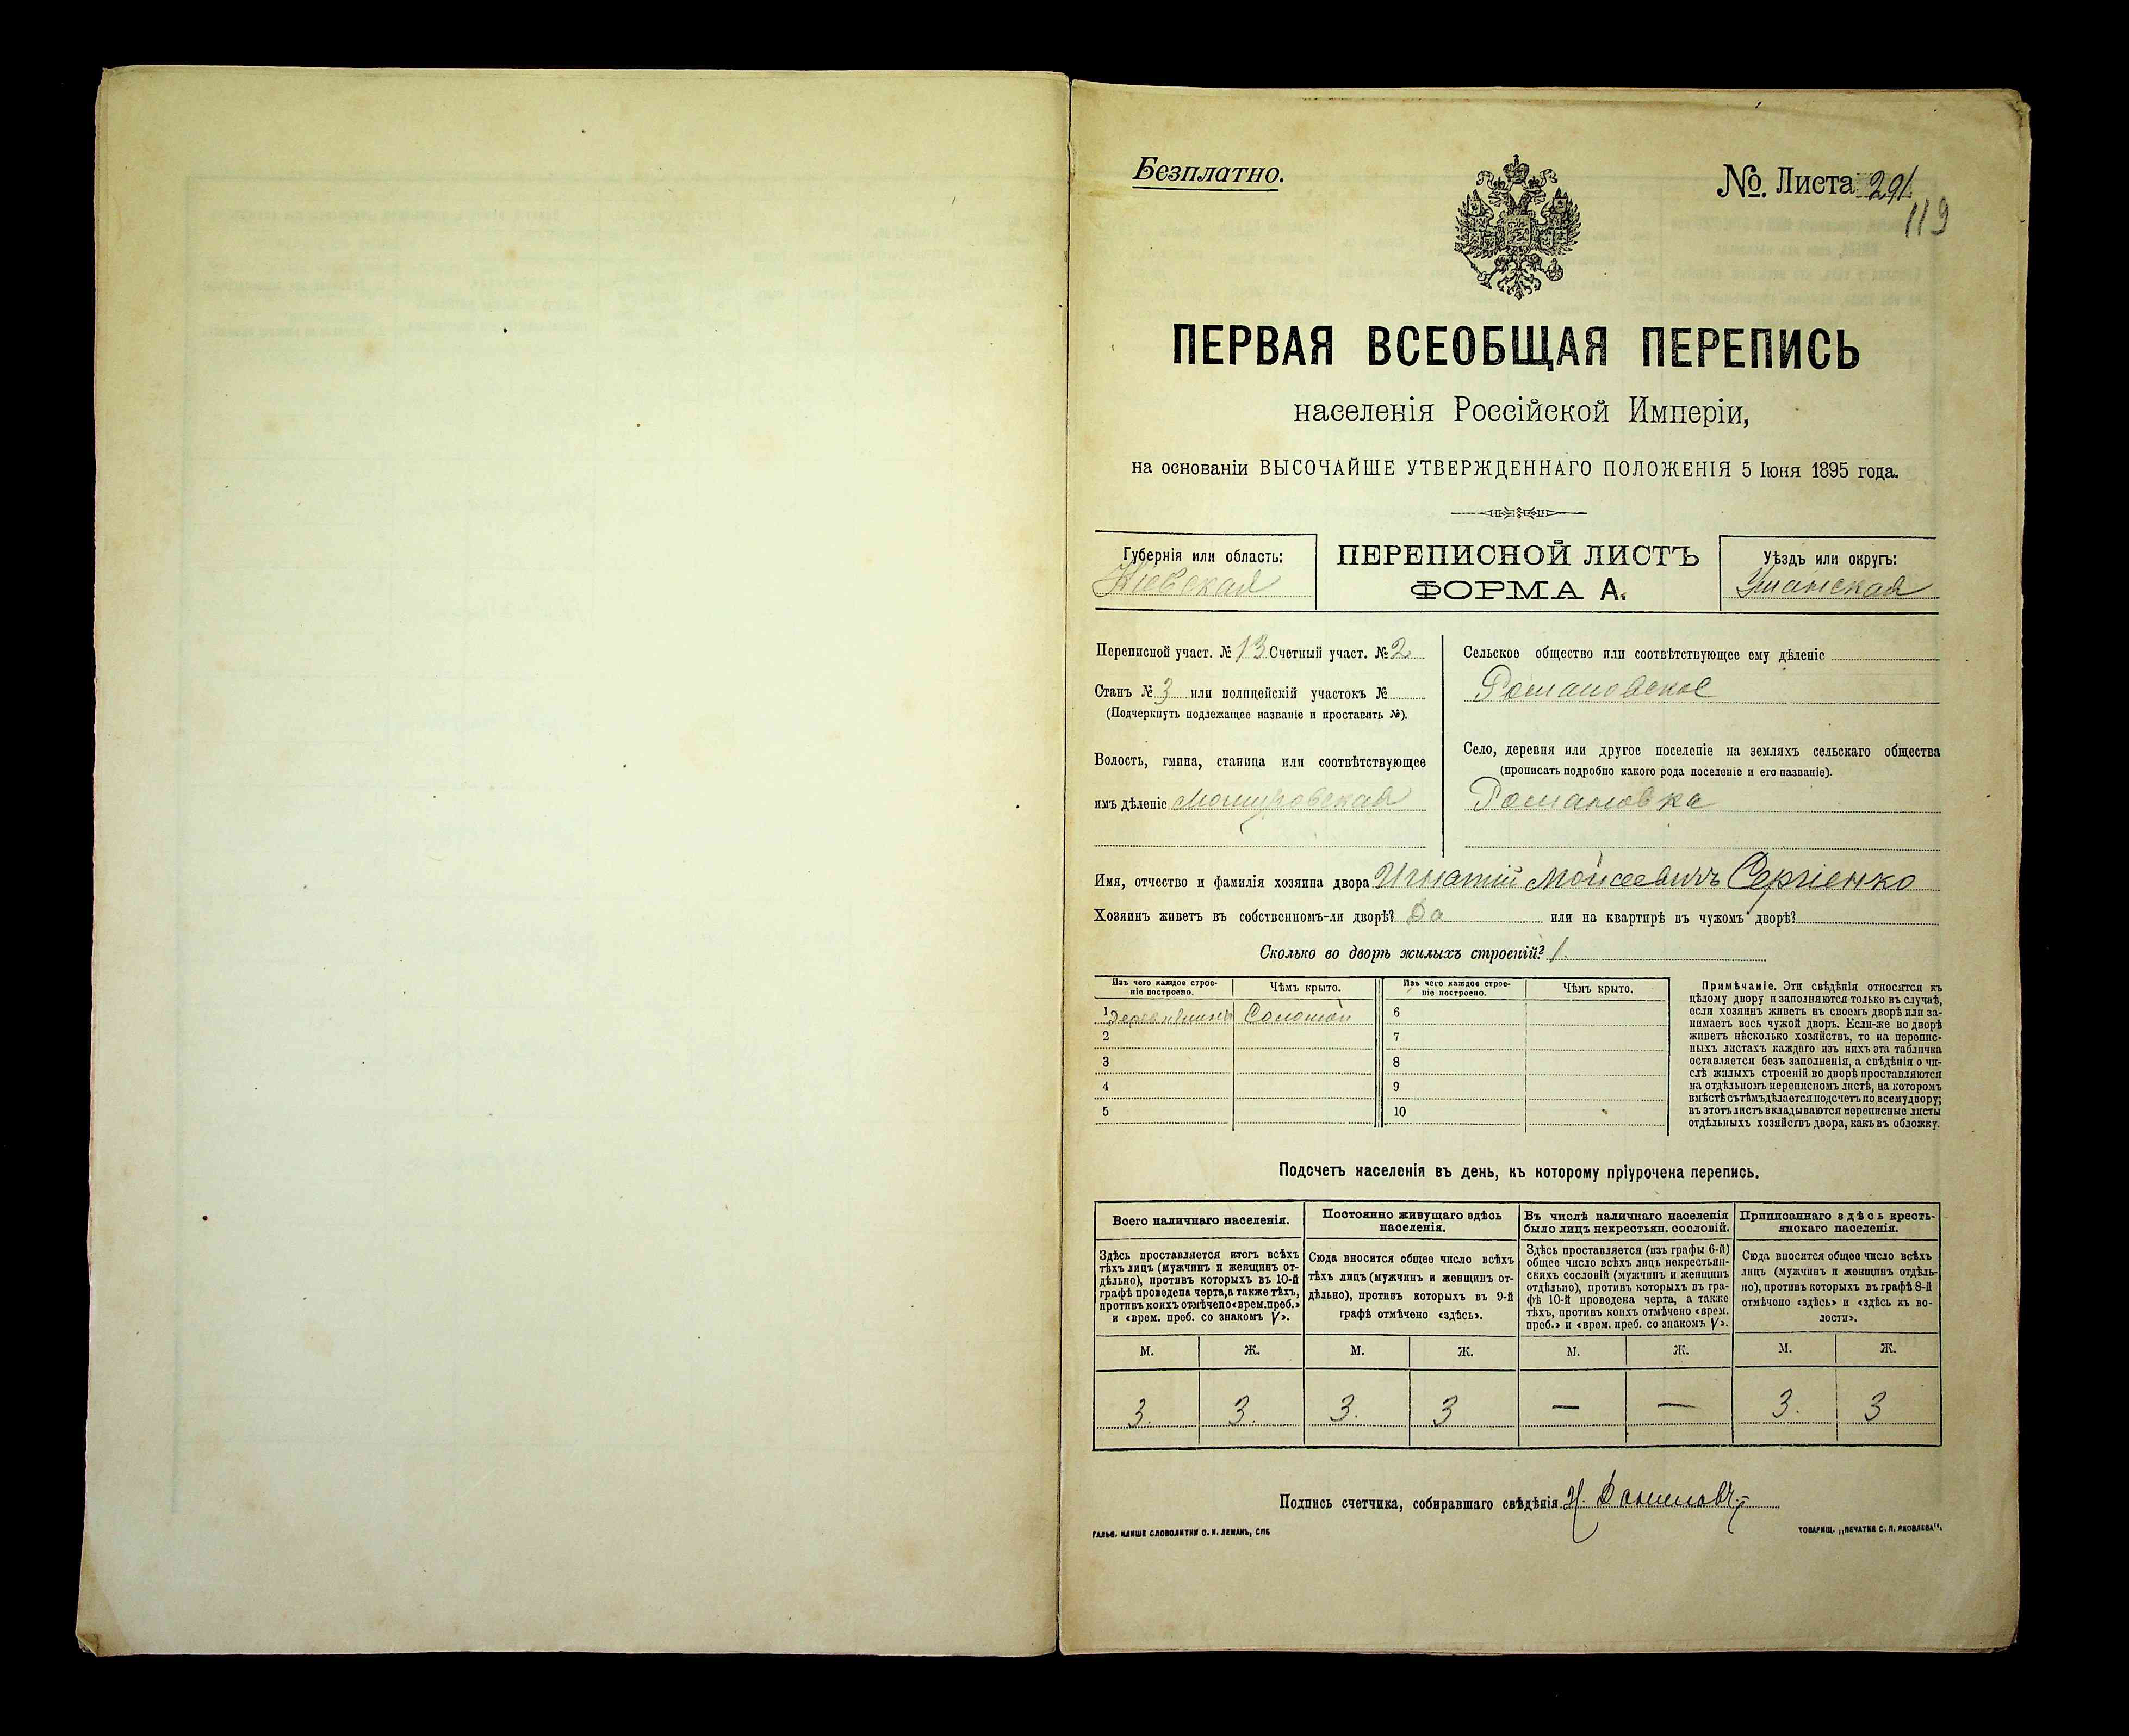 Безплатно.
№. Листа 291.
119
ПЕРВАЯ ВСЕОБЩАЯ ПЕРЕПИСЬ
населенія Россійской Имперіи,
на основаніи ВЫСОЧАЙШЕ УТВЕРЖДЕННАГО ПОЛОЖЕНІЯ 5 Іюня 1895 года.
Губернія или область:
Кіевская
ПЕРЕПИСНОЙ ЛИСТЪ
ФОРМА А.
Уѣздъ или округъ:
Уманская
Переписной участ. № 13 Счетный участ. № 2
Станъ № 3 или полицейскій участокъ №
(Подчеркнуть подлежащее названіе и проставить №).
Волость, гмина, станица или соотвѣтствующее
имъ дѣленіе Машуровская
Сельское общество или соотвѣтствующее ему дѣленіе
Романовское
Село, деревня или другое поселеніе на земляхъ сельскаго общества
(прописать подробно какого рода поселеніе и его названіе).
Романовка
Имя, отчество и фамилія хозяина двора Игнатій Моисеевичъ Сергіенко
Хозяинъ живетъ въ собственномъ-ли дворѣ? Да или на квартирѣ въ чужомъ дворѣ?
Сколько во дворѣ жилыхъ строеній? 1.
Изъ чего каждое строе-
ніе построено.
Чѣмъ крыто.
Изъ чего каждое строе-
ніе построено.
Чѣмъ крыто.
1 Соломой 6
2 7
3 8
4 9
5 10
Примѣчаніе. Эти свѣдѣнія относятся къ
цѣлому двору и заполняются только въ случаѣ,
если хозяинъ живетъ въ своемъ дворѣ или за-
нимаетъ весь чужой дворъ. Если-же во дворѣ
живетъ нѣсколько хозяйствъ, то на перепис-
ныхъ листахъ каждаго изъ нихъ эта табличка
оставляется безъ заполненія, а свѣдѣнія о чи-
слѣ жилыхъ строеній во дворѣ проставляются
на отдѣльномъ переписномъ листѣ, на которомъ
вмѣстѣ съ тѣмъ дѣлается подсчетъ по всему двору;
въ этотъ листъ вкладываются переписные листы
отдѣльныхъ хозяйствъ двора, какъ въ обложку.
Подсчетъ населенія въ день, къ которому пріурочена перепись.
Всего наличнаго населенія.
Здѣсь проставляется итогъ всѣхъ
тѣхъ лицъ (мужчинъ и женщинъ от-
дѣльно), противъ которыхъ въ 10-й
графѣ проведена черта, а также тѣхъ,
противъ коихъ отмѣчено «врем. преб.»
и «врем. преб. со знакомъ V».
Постоянно живущаго здѣсь
населенія.
Сюда вносится общее число всѣхъ
тѣхъ лицъ (мужчинъ и женщинъ от-
дѣльно), противъ которыхъ въ 9-й
графѣ отмѣчено «здѣсь».
Въ числѣ наличнаго населенія
было лицъ некрестьян. сословій.
Здѣсь проставляется (изъ графы 6-й)
общее число всѣхъ лицъ некрестьян-
скихъ сословій (мужчинъ и женщинъ
отдѣльно), противъ которыхъ въ гра-
фѣ 10-й проведена черта, а также
тѣхъ, противъ коихъ отмѣчено «врем.
преб.» и «врем. преб. со знакомъ V».
Приписаннаго здѣсь кресть-
янскаго населенія.
Сюда вносится общее число всѣхъ
лицъ (мужчинъ и женщинъ отдѣль-
но), противъ которыхъ въ графѣ 8-й
отмѣчено «здѣсь» и «здѣсь къ во-
лости».
М. Ж. М. Ж. М. Ж. М. Ж.
3. 3. 3. 3 — — 3. 3
Подпись счетчика, собиравшаго свѣдѣнія
ГАЛЬВ. КЛИШЕ СЛОВОЛИТНИ О. И. ЛЕМАНЪ, СПБ
ТОВАРИЩ. „ПЕЧАТНЯ С. П. ЯКОВЛЕВА“.